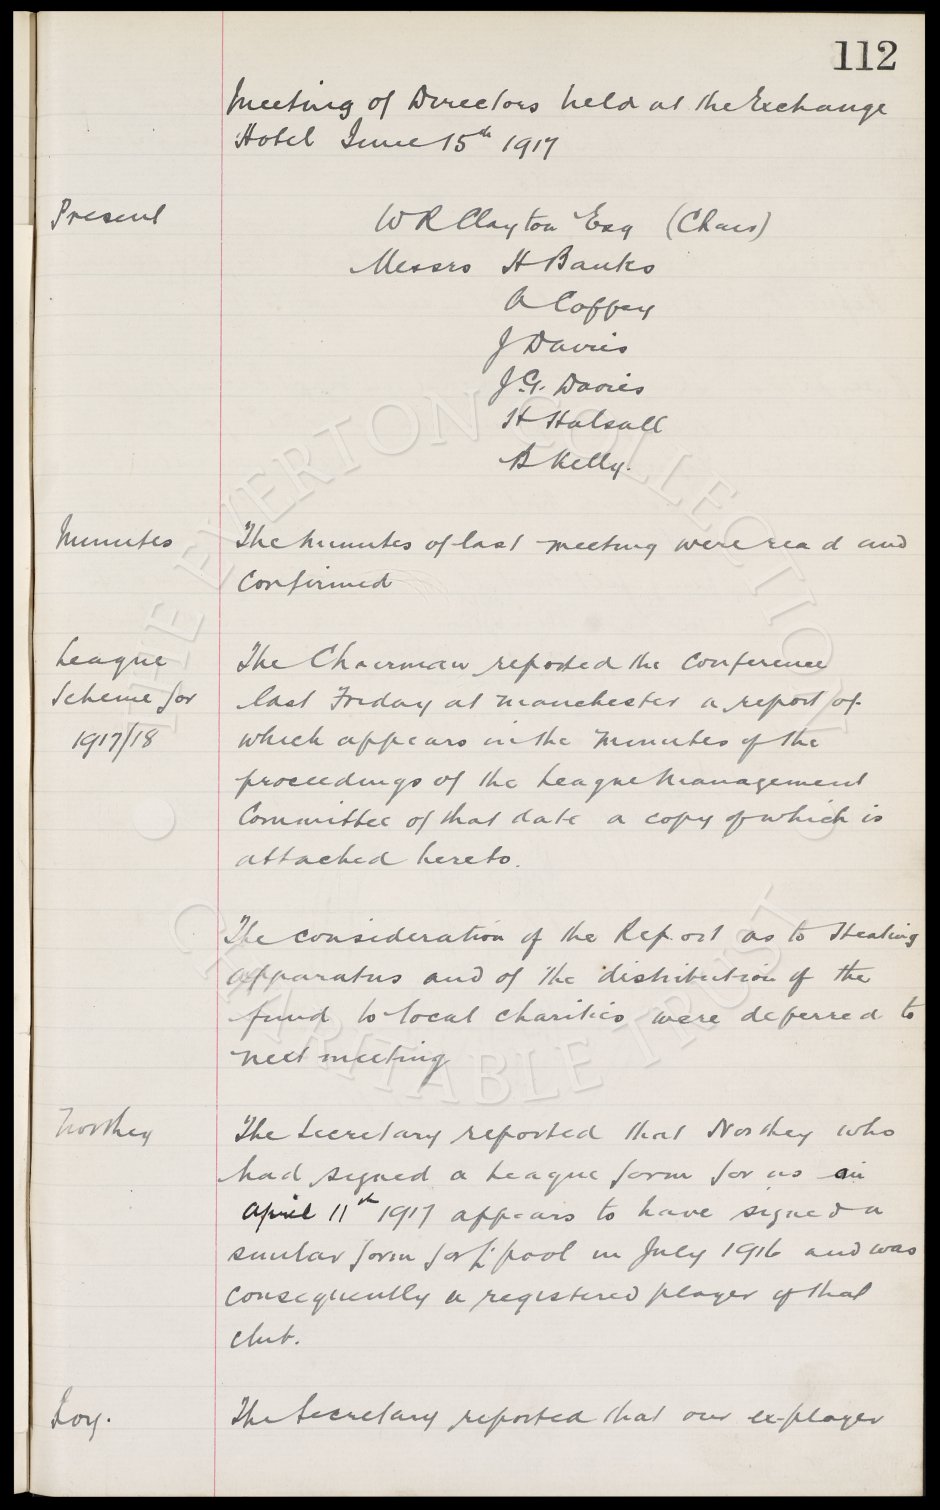 112
Meeting of Directors held at the Exchange
Hotel June 15th 1917
Present
W R Clayton Esq (Chair)
Messrs H Banks
A Coffey
J Davies
J.G. Davies
H Halsall
B Kelly.
Minutes
The minutes of last meeting were read and
confirmed
League
Scheme for
1917/18
The Chairman reported the conference
last Friday at Manchester a report of
which appears in the minutes of the
proceedings of the League Management
Committee of that date a copy of which is
attached hereto.
The consideration of the Report as to Heating
apparatus and of the distribution of the
fund to local charities were deferred to
next meeting
Northey
The Secretary reported that Northey who
had signed a League form for us on
April 11th 1917 appears to have signed a
similar form for L'pool in July 1916 and was
consequently a registered player of that
club.
The Secretary reported that our ex-player
THE EVERTON COLLECTION
CHARITABLE TRUST